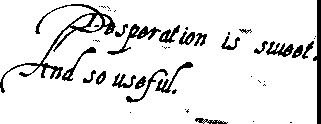 Desperation is sweet.
And so useful.